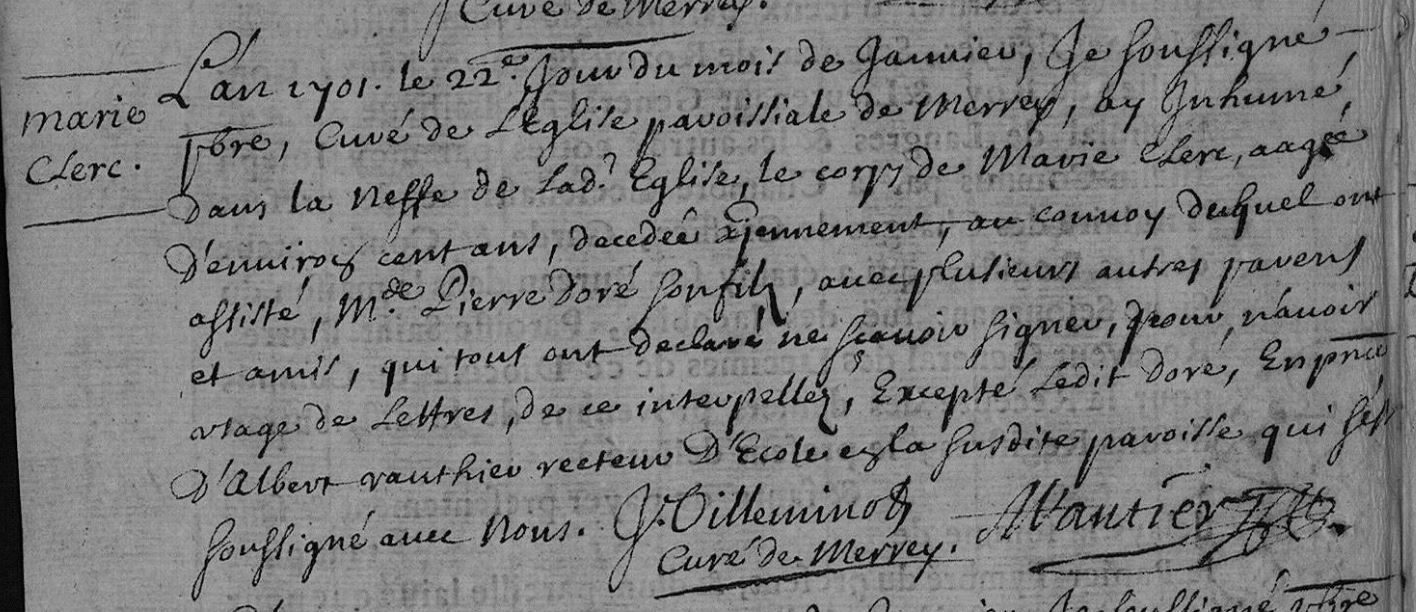 Curé de Merrey.
marie
Clerc.
L'an 1701. le 22e. Jour du mois de Januier, Je soussigné
pbre, Curé de L'Eglise paroissiale de Merrey, ay Inhumé,
dans la neffe de Lad.e Eglise, le corps de Marie Clerc, aagée
d'enuiron cent ans, decedée xjennement, au conuoy duquel ont
assisté, M.de Pierre doré son filz, auec plusieurs autres parens
et amis, qui tous ont declaré ne sçauoir signer, pour n'auoir
vsage de Lettres, de ce interpellez, Excepté Ledit doré, En pnce
d'Albert vauthier recteur d'Ecole en la susdite paroisse qui s'est
soussigné auec Nous. J. Villeminot
Curé de Merrey.
AVautier